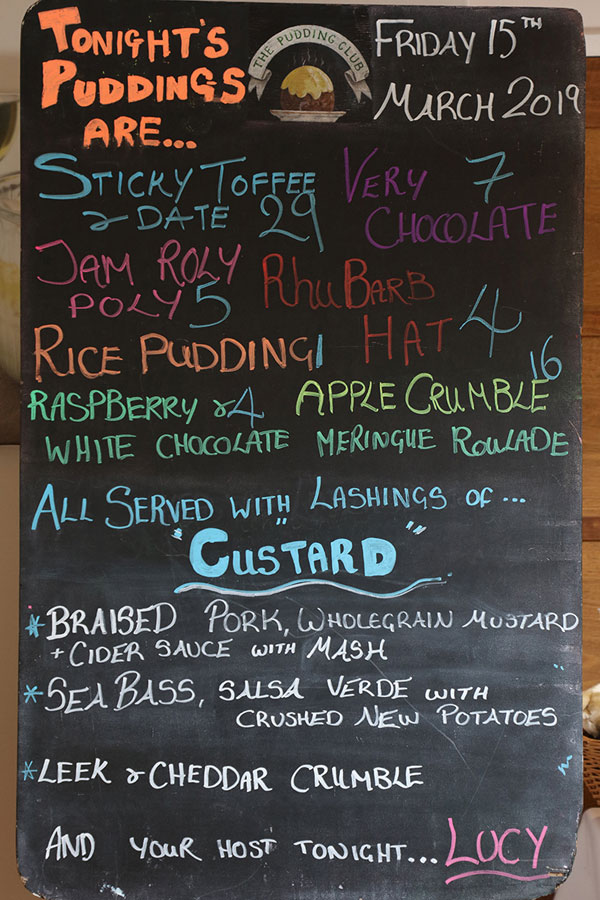 TONIGHT'S
PUDDINGS
ARE...
THE PUDDING CLUB
FRIDAY 15TH
MARCH 2019
STICKY TOFFEE
& DATE 29
VERY 7
CHOCOLATE
JAM ROLY
POLY 5
RHUBARB
HAT 4
RICE PUDDING 1
RASPBERRY & 4
WHITE CHOCOLATE MERINGUE ROULADE
APPLE CRUMBLE 16
ALL SERVED WITH LASHINGS OF...
"CUSTARD"
* BRAISED PORK, WHOLEGRAIN MUSTARD
+ CIDER SAUCE WITH MASH
* SEA BASS, SALSA VERDE WITH
CRUSHED NEW POTATOES
* LEEK & CHEDDAR CRUMBLE
AND YOUR HOST TONIGHT... LUCY